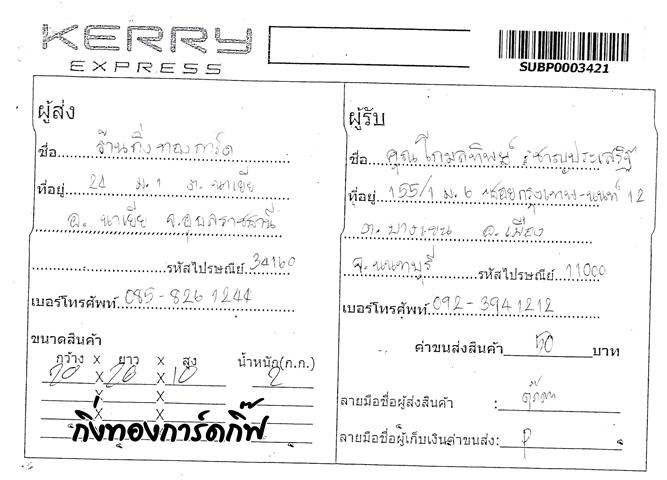 KERRY
EXPRESS
SUBP0003421
ผู้ส่ง
ชื่อ ร้านกิ่งทองการ์ด
ที่อยู่ 24 ม.1 ต. นาเยีย
อ. นาเยีย จ.อุบลราชธานี
รหัสไปรษณีย์ 34160
เบอร์โทรศัพท์ 085-826 1244
ขนาดสินค้า
กว้าง x ยาว x สูง น้ำหนัก(ก.ก.)
20 x 26 x 10 2
x x
x x
x x
กิ่งทองการ์ดกิ๊ฟ
ผู้รับ
ชื่อ คุณโกมลทิพย์ ชาญประเสริฐ
ที่อยู่ 155/1 ม. 6 ซอยกรุงเทพ-นนท์ 12
ต. บางเขน อ. เมือง
จ. นนทบุรี รหัสไปรษณีย์ 11000
เบอร์โทรศัพท์ 092-394 1212
ค่าขนส่งสินค้า 50 บาท
ลายมือชื่อผู้ส่งสินค้า :
ลายมือชื่อผู้เก็บเงินค่าขนส่ง: